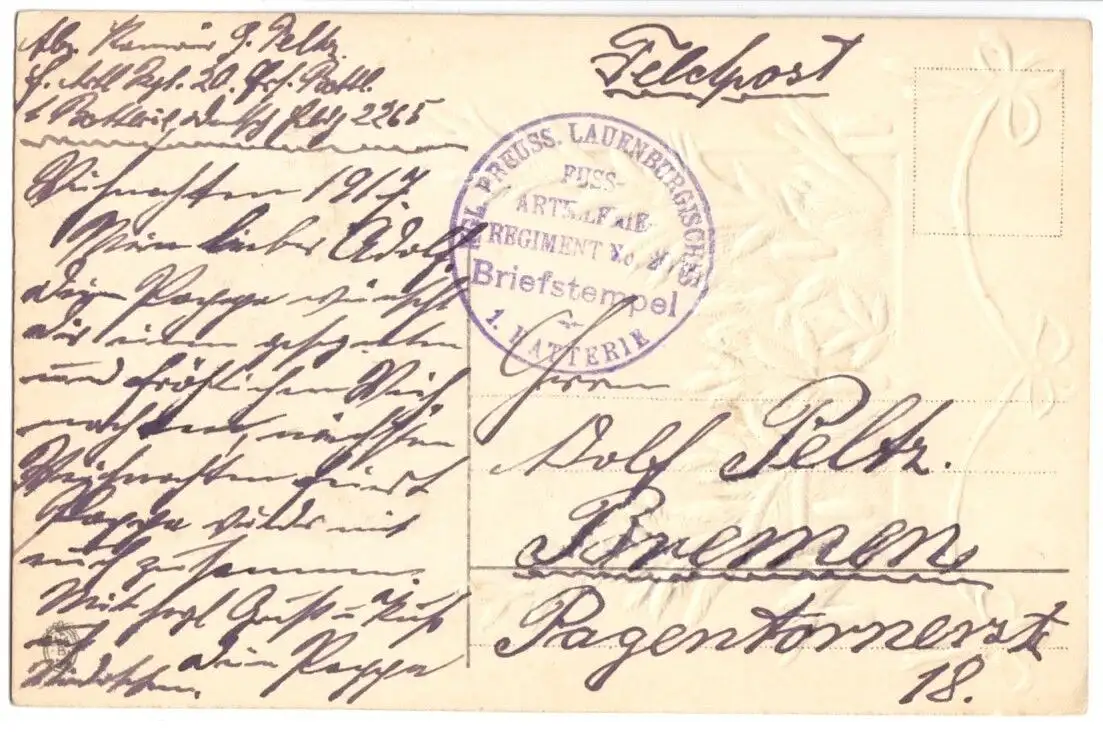 Abs. Kanonier G. Peltz
1. Batterie deutsch Feldp. 2265
Weihnachten 1917.
Mein lieber Adolf,
dein Pappa wünscht
dir einen gesegneten
und fröhlichen Weih
nachten, nächsten
Weihnachten feiert
Pappa wieder mit
euch zusammen.
Mit herzl Gruß u Kuß
dein Pappa
Feldpost
KGL. PREUSS. LAUENBURGISCHES
FUSS-
ARTILLERIE-
REGIMENT No.
Briefstempel
1. BATTERIE
Herrn
Adolf Peltz.
Bremen
Pagentornerstr
18.